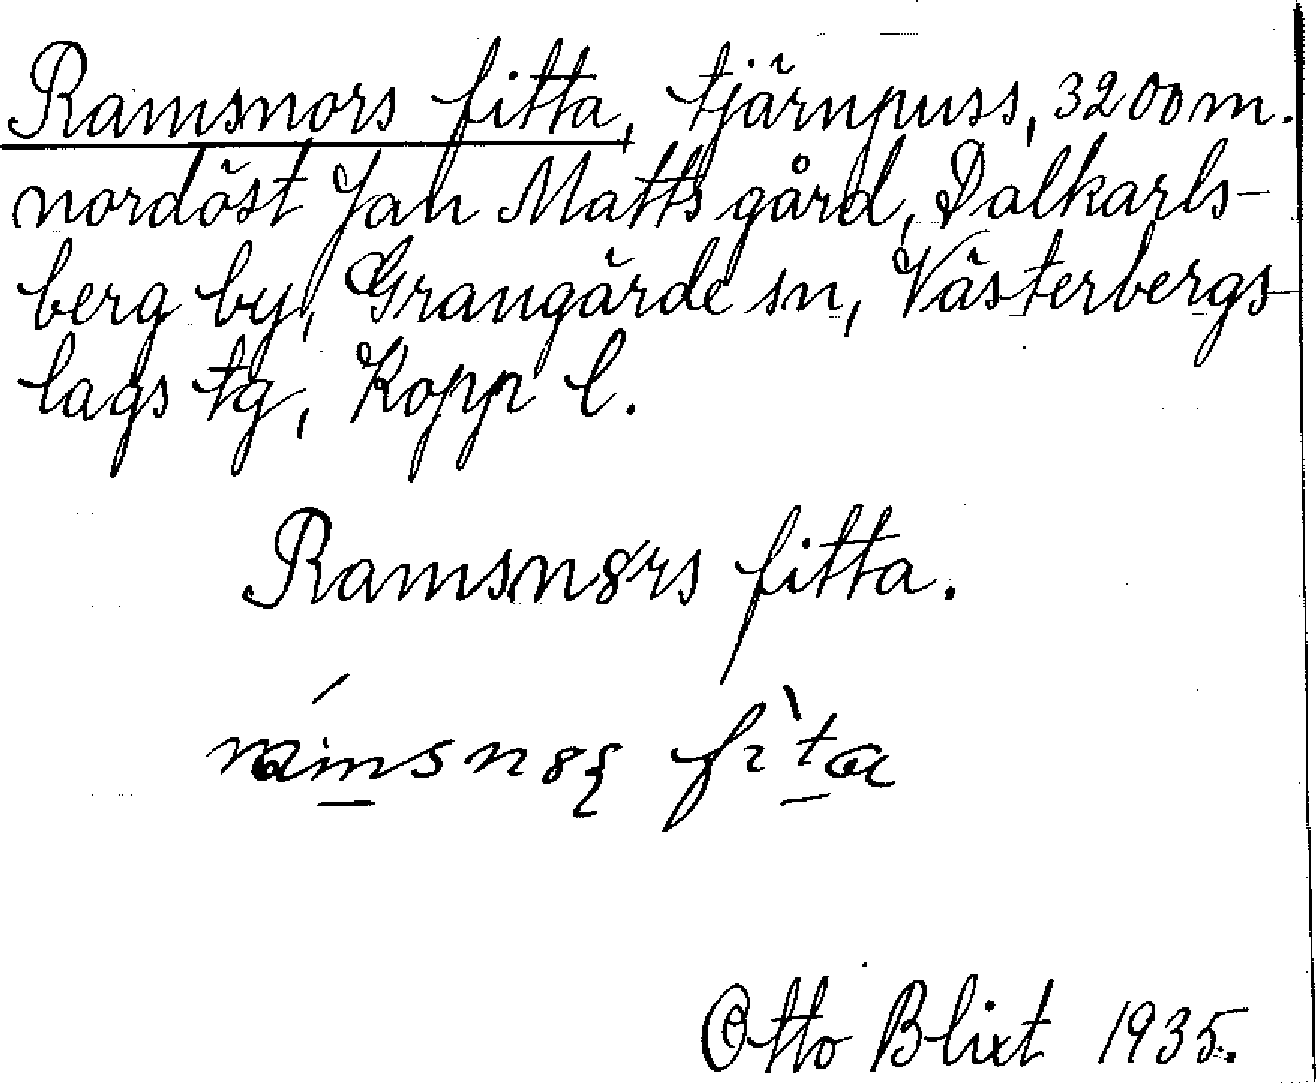 Ramsnors fitta, tjärnpuss, 3200 m.
nordöst Jan Matts gård, Dalkarls-
berg by, Grangärde sn, Västerbergs
lags tg, Kopp l.
Ramsn8rs fitta.
fìta
Otto Blixt 1935.